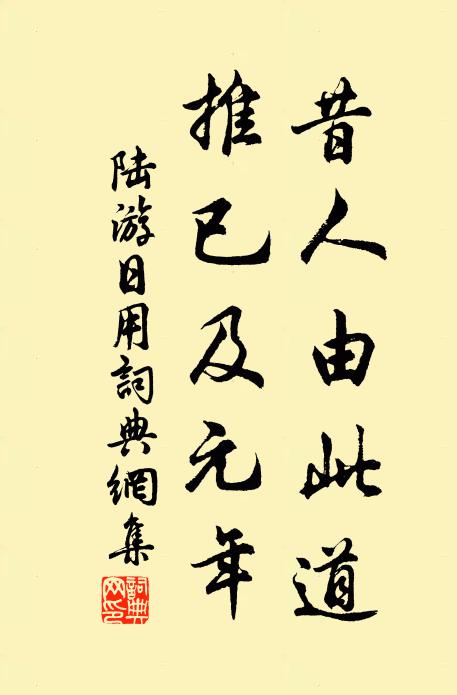 昔人由此道
推已及元年
陆游日用詞典網集
詞典